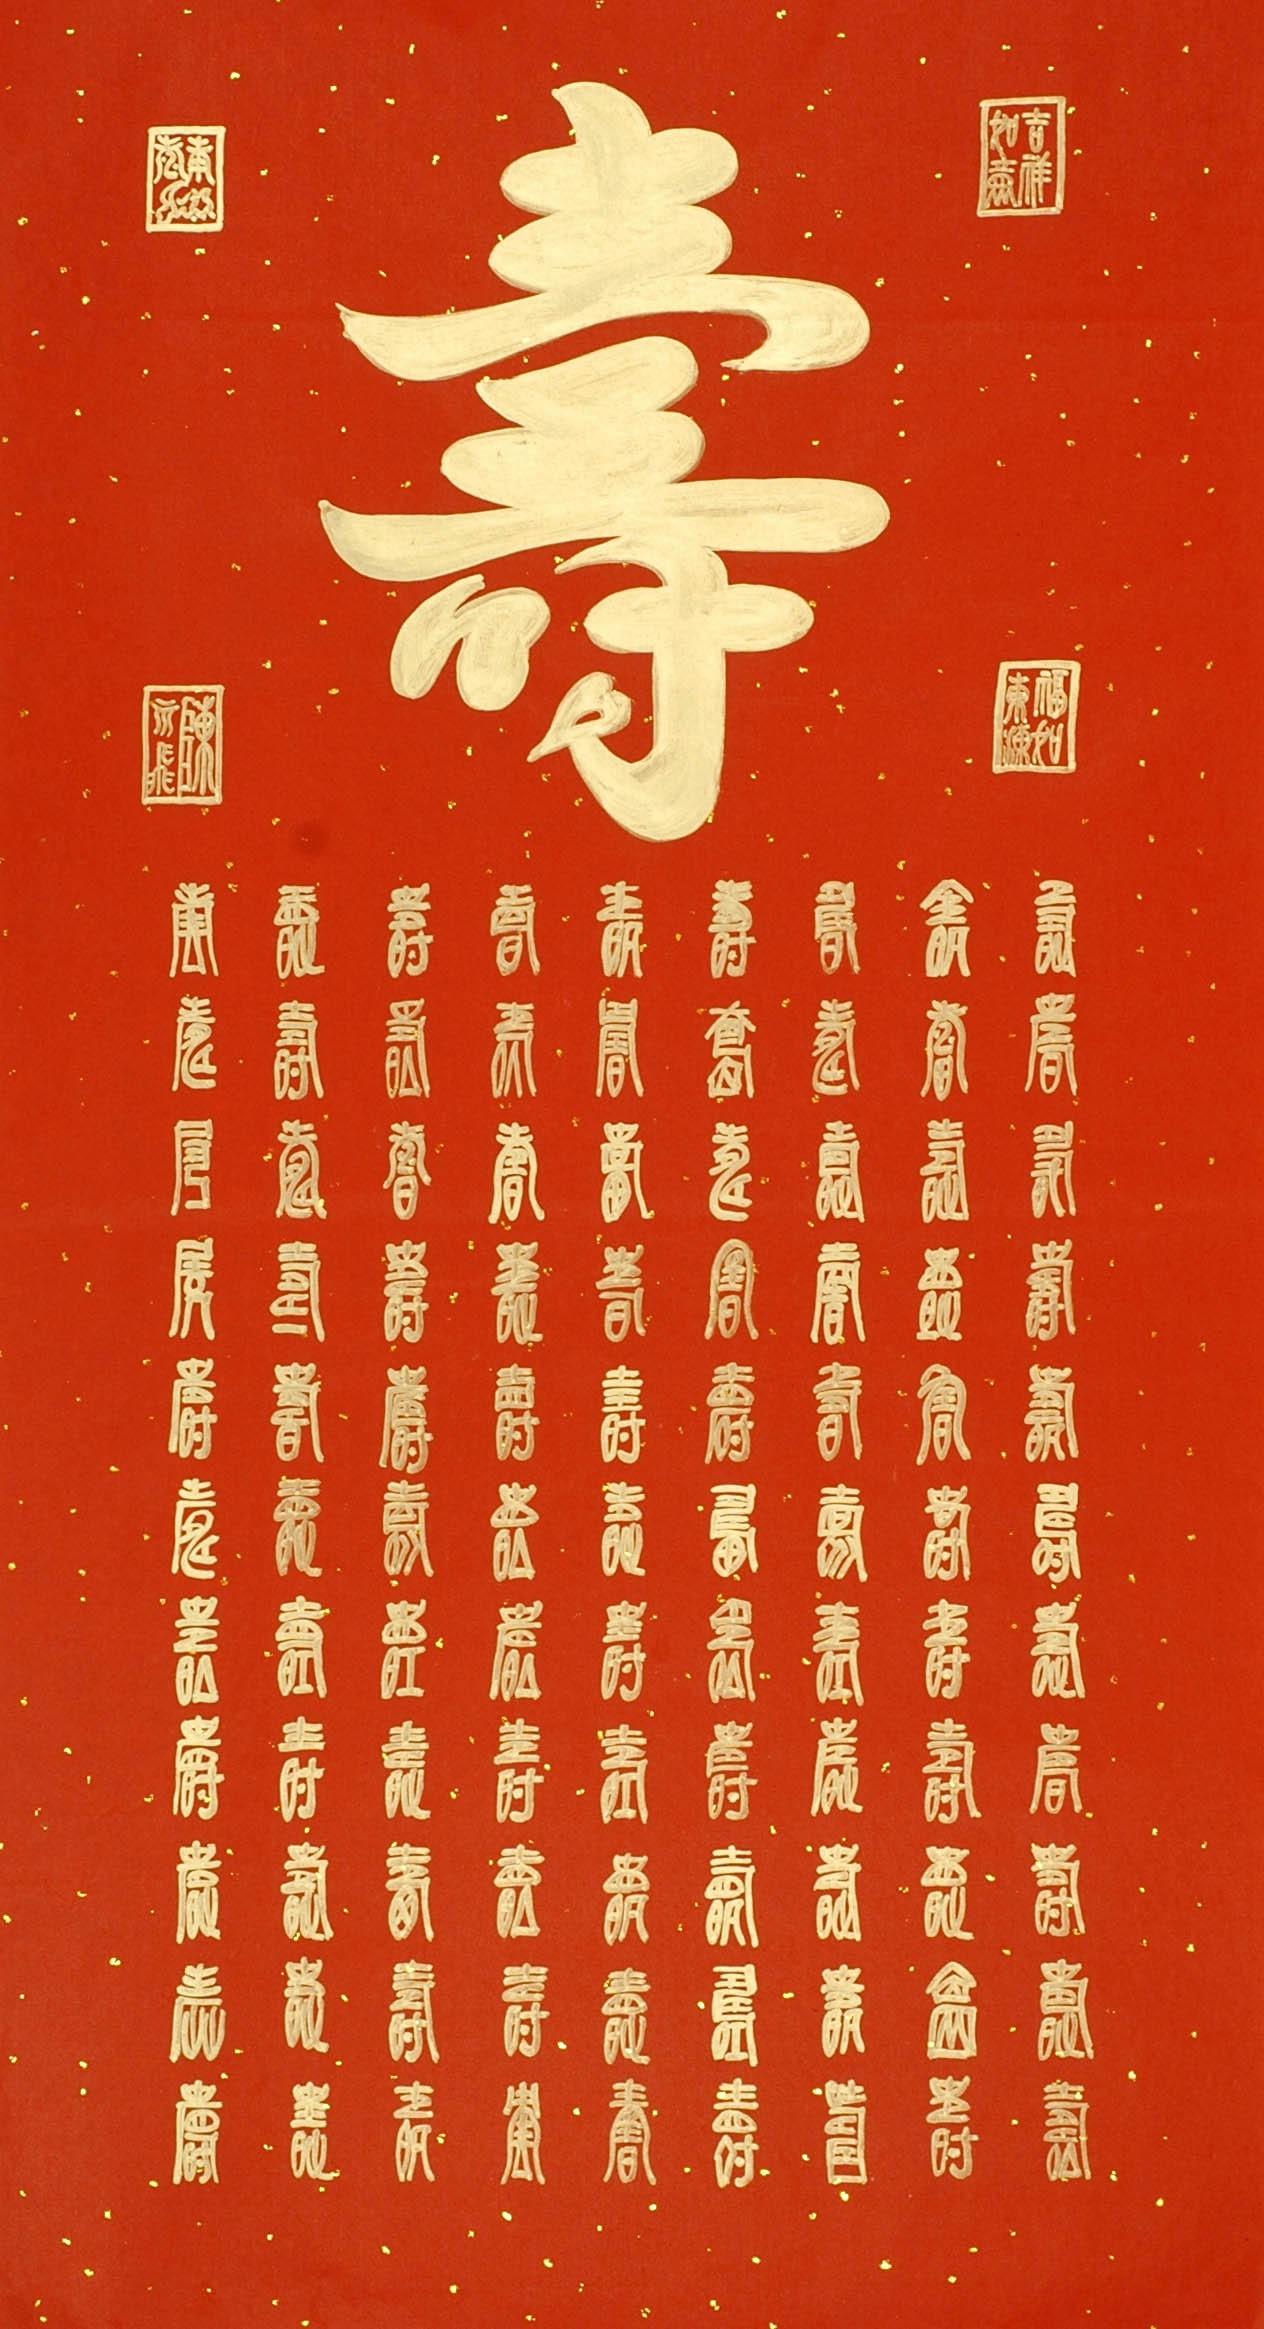 壽
吉祥如意
福如東海
壽壽壽壽壽壽壽壽壽壽壽
壽壽壽壽壽壽壽壽壽壽壽
壽壽壽壽壽壽壽壽壽壽壽
壽壽壽壽壽壽壽壽壽壽壽
壽壽壽壽壽壽壽壽壽壽壽
壽壽壽壽壽壽壽壽壽壽壽
壽壽壽壽壽壽壽壽壽壽壽
壽壽壽壽壽壽壽壽壽壽壽
壽壽壽壽壽壽壽壽壽壽壽